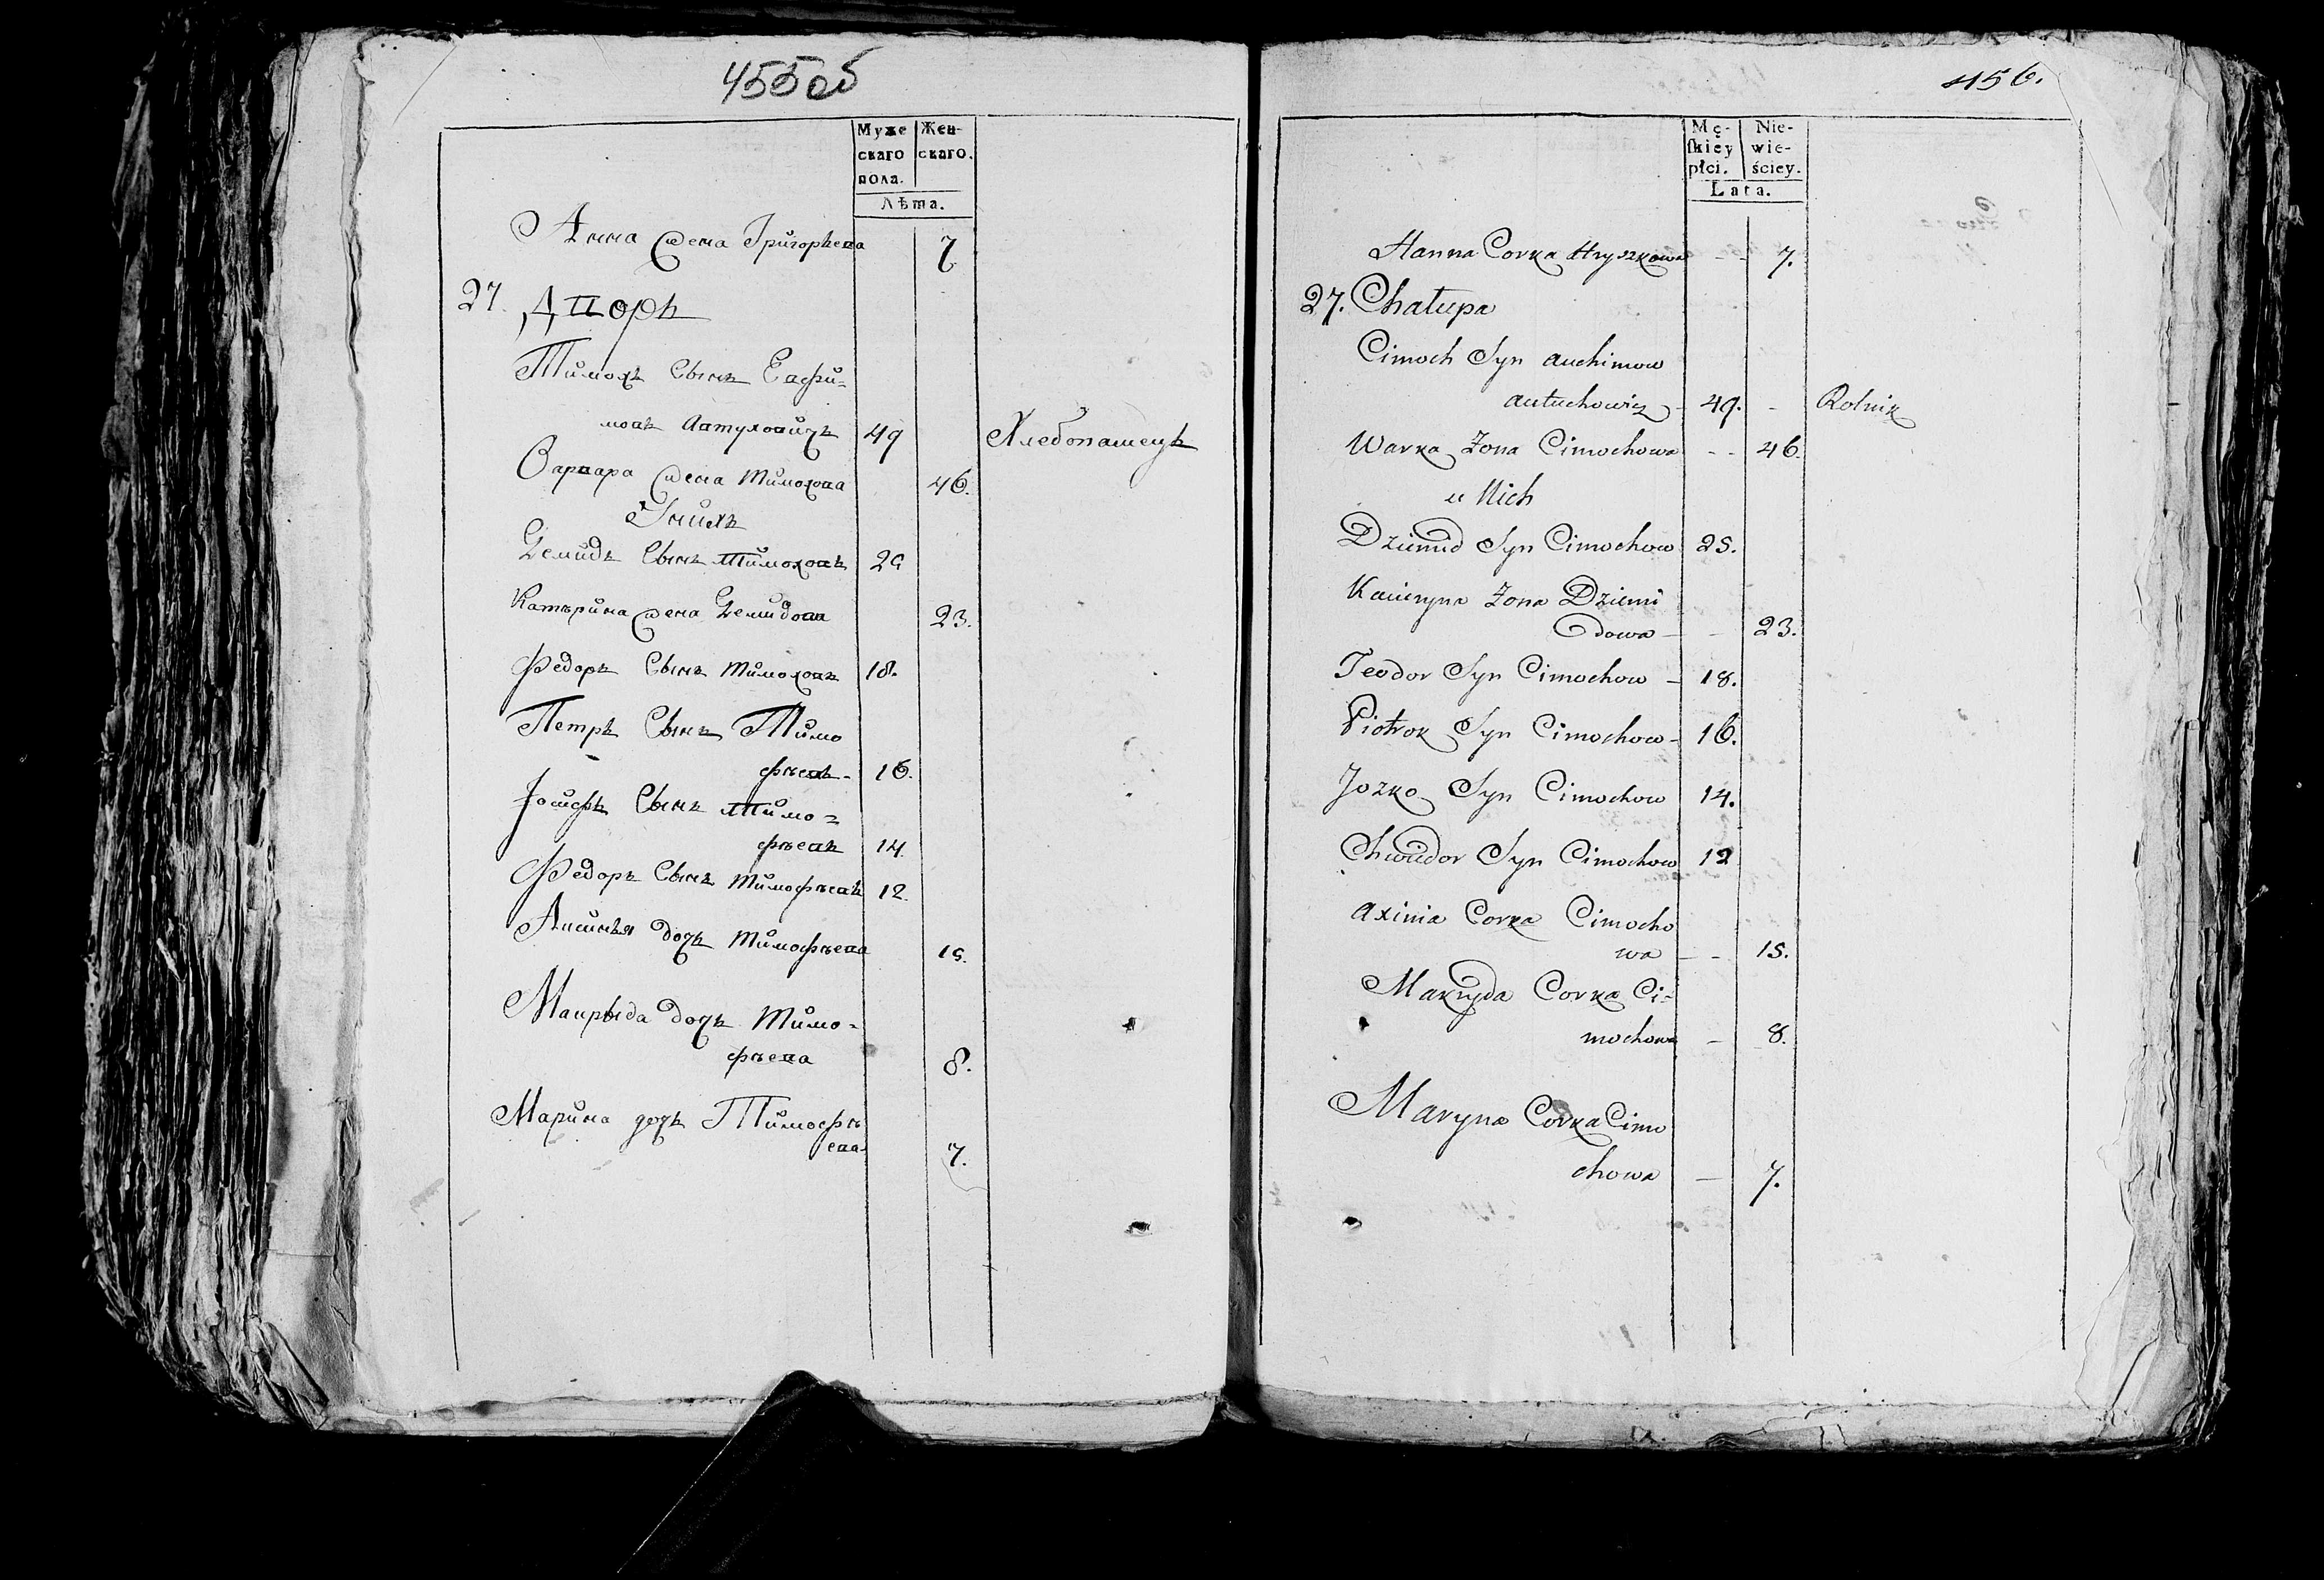 455об
Муже
скаго
пола.
Жен-
скаго.
Лѣта.
Анна жена Григорьева 7
27. Дворъ
Тимохъ Сынъ Евфи=
мовъ Автуховичъ 49 Хлебопашецъ
Варвара жена Тимохова 46.
У нихъ
Демидъ Сынъ Тимоховъ 25
Катърина жена Демидова 23.
Федоръ Сынъ Тимоховъ 18.
Петръ Сынъ Тимо
фѣевъ - 16.
Іосифъ Сынъ Тимо=
фѣевъ 14.
Федоръ Сынъ Тимофѣевъ 12.
Аксинья дочь Тимофѣева 15.
Макрыда дочь Тимо=
фѣева 8.
Марина дочь Тимофѣ
ева 7.
456.
Mę-
ſkiey
płci.
Nie-
wie-
ściey.
Lata.
Hanna Corka Hryszkowa - - 7.
27. Chałupa
Cimoch Syn Auchimow
Autuchowicz - 49. - Rolnik
Warka Żona Cimochowa - - 46.
u Nich
Dziemid Syn Cimochow 25.
Kacieryna Żona Dziemi
dowa - - 23.
Teodor Syn Cimochow - 18.
Piotrok Syn Cimochow - 16.
Jozko Syn Cimochow 14.
Chwiedor Syn Cimochow 12
Axinia Corka Cimocho
wa - - 15.
Makryda Corka Ci-
mochowa - 8.
Maryna Corka Cimo
chowa - 7.